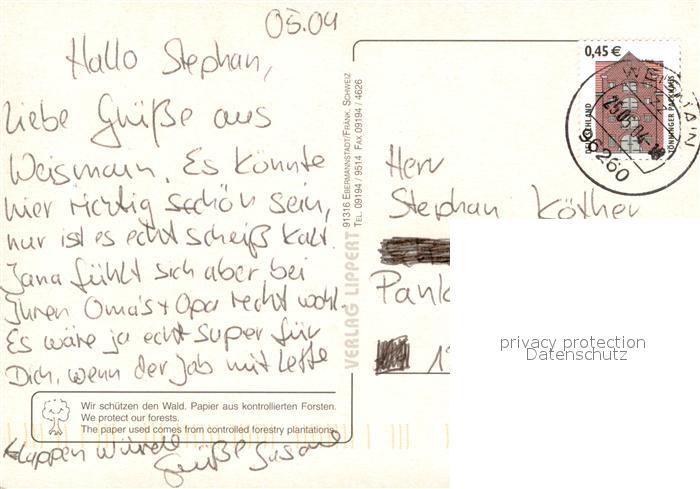 05.04
Hallo Stephan,
Liebe Grüße aus
Weismain. Es könnte
hier richtig schön sein,
nur ist es echt scheiß kalt.
Jana fühlt sich aber bei
Ihren Oma's + Opa recht wohl.
Es wäre ja echt super für
Dich, wenn der Job mit Lette
klappen würde
Grüße Susane
Wir schützen den Wald. Papier aus kontrollierten Forsten.
We protect our forests.
The paper used comes from controlled forestry plantations.
VERLAG LIPPERT
91316 EBERMANNSTADT/FRÄNK. SCHWEIZ
TEL. 09194 / 9514 FAX 09194 / 4626
0,45 €
DEUTSCHLAND
TÖNNINGER PACKHAUS
WEISMAIN
25.05.04
96260
Herr
Stephan Köther
Pank
1
privacy protection
Datenschutz